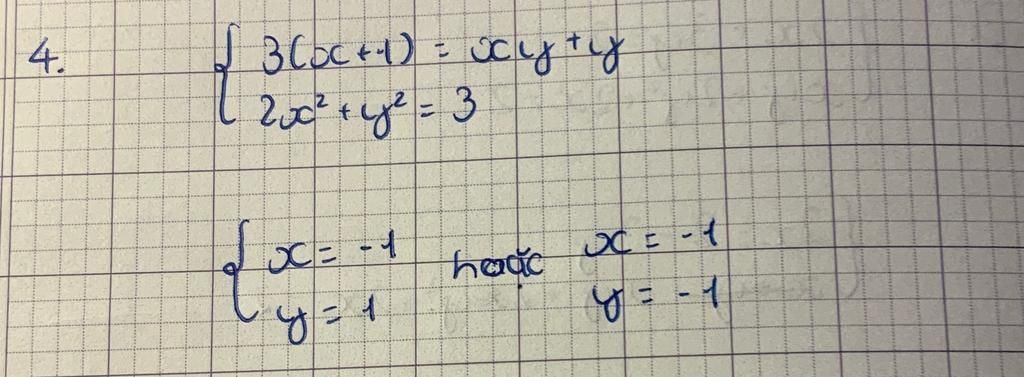 4. { 3(x+1) = xy+y
2x² + y² = 3
{ x = -1 hoặc x = -1
y = 1 y = -1